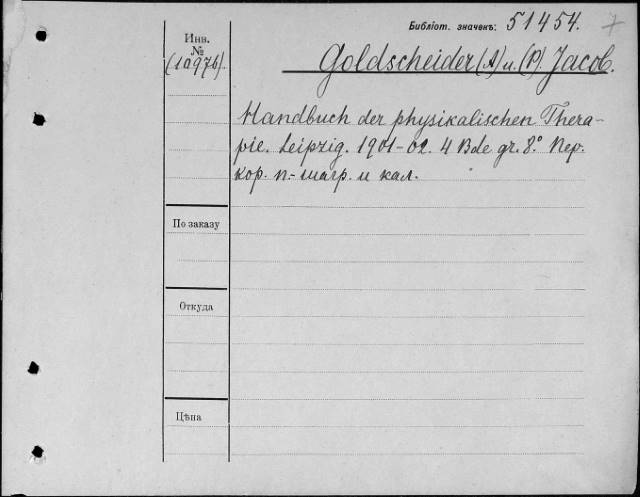 Библіот. значекъ: 51454. 7
Инв.
№
(10976).
Goldscheider (A) u. (P). Jacob.
Handbuch der physikalischen Thera-
pie. Leipzig. 1901-02. 4 Bde gr. 8.° Пер.
кор. п.-шагр. и кал.
По заказу
Откуда
Цѣна